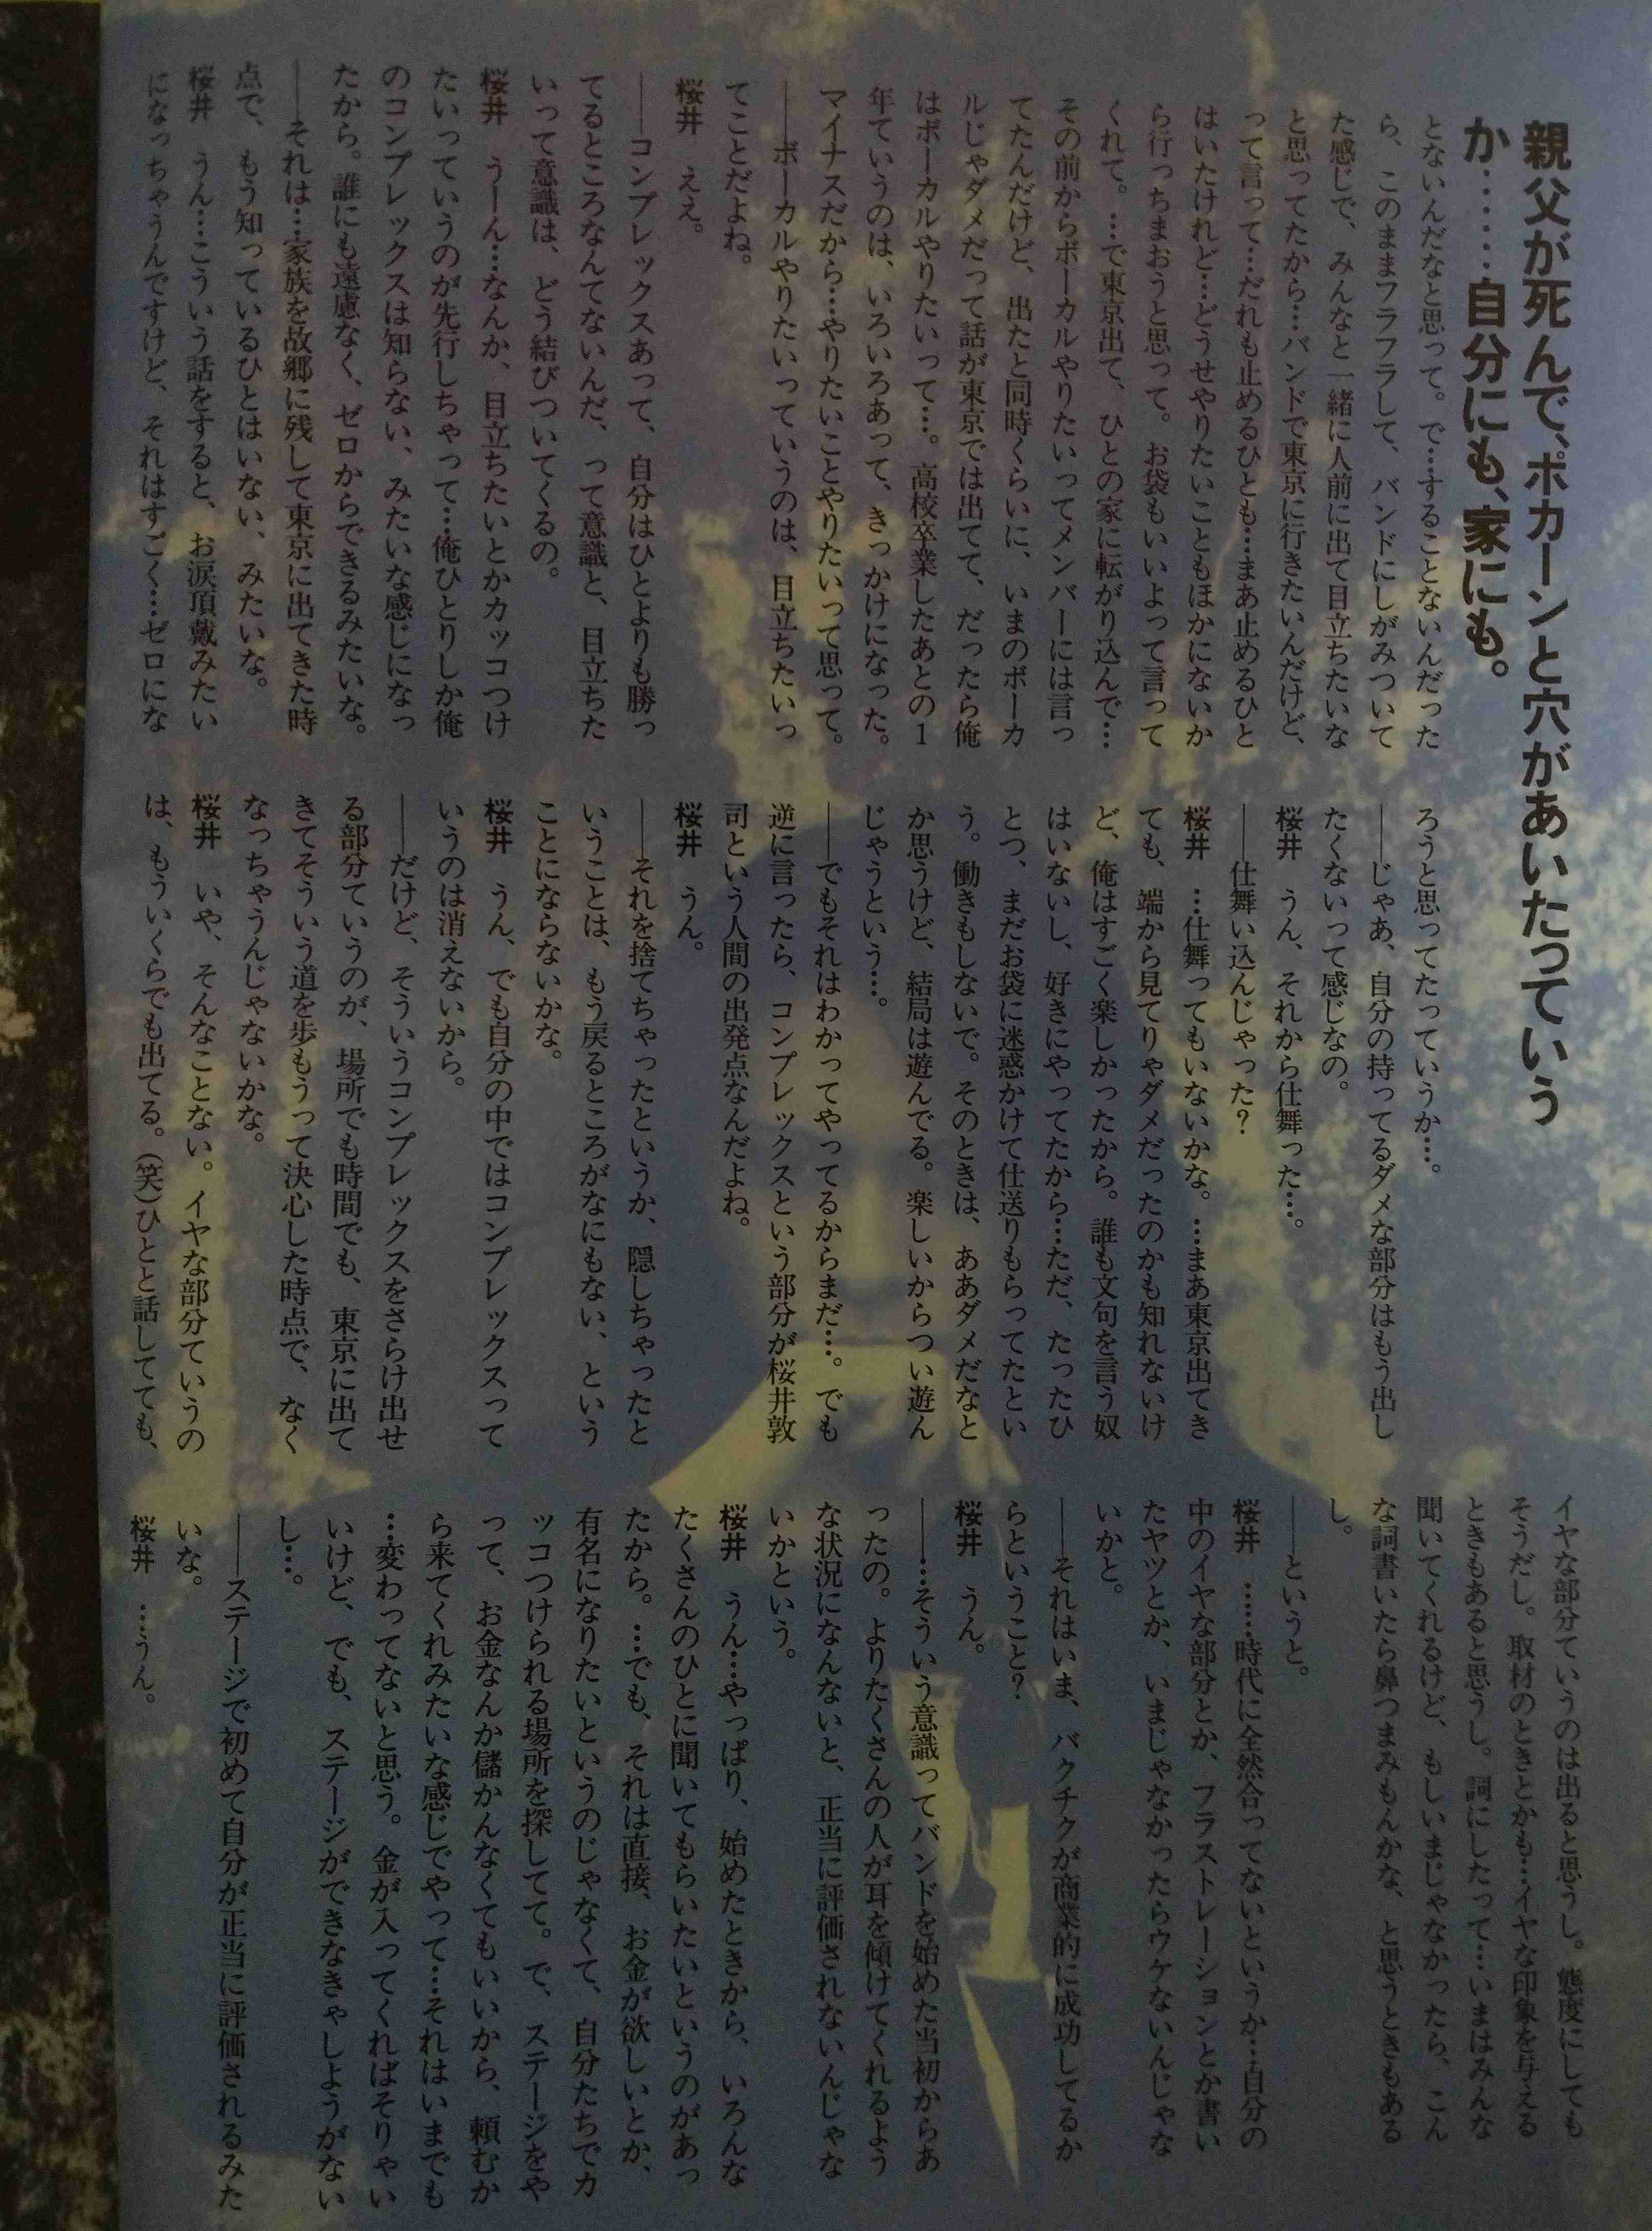 親父が死んで、ポカーンと穴があいたっていう
か……自分にも、家にも。
とないんだなと思って。で…することないんだった
ら、このままフラフラして、バンドにしがみついて
た感じで、みんなと一緒に人前に出て目立ちたいな
と思ってたから…バンドで東京に行きたいんだけど、
って言って…だれも止めるひとも…まあ止めるひと
はいたけれど…どうせやりたいこともほかにないか
ら行っちまおうと思って。お袋もいいよって言って
くれて。…で東京出て、ひとの家に転がり込んで…
その前からボーカルやりたいってメンバーには言っ
てたんだけど、出たと同時くらいに、いまのボーカ
ルじゃダメだって話が東京では出てて、だったら俺
はボーカルやりたいって…。高校卒業したあとの1
年ていうのは、いろいろあって、きっかけになった。
マイナスだから…やりたいことやりたいって思って。
――ボーカルやりたいっていうのは、目立ちたいっ
てことだよね。
桜井　ええ。
――コンプレックスあって、自分はひとよりも勝っ
てるところなんてないんだ、って意識と、目立ちた
いって意識は、どう結びついてくるの。
桜井　うーん…なんか、目立ちたいとかカッコつけ
たいっていうのが先行しちゃって…俺ひとりしか俺
のコンプレックスは知らない、みたいな感じになっ
たから。誰にも遠慮なく、ゼロからできるみたいな。
――それは…家族を故郷に残して東京に出てきた時
点で、もう知っているひとはいない、みたいな。
桜井　うん…こういう話をすると、お涙頂戴みたい
になっちゃうんですけど、それはすごく…ゼロにな
ろうと思ってたっていうか…。
――じゃあ、自分の持ってるダメな部分はもう出し
たくないって感じなの。
桜井　うん、それから仕舞った…。
――仕舞い込んじゃった？
桜井　…仕舞ってもいないかな。…まあ東京出てき
ても、端から見てりゃダメだったのかも知れないけ
ど、俺はすごく楽しかったから。誰も文句を言う奴
はいないし、好きにやってたから…ただ、たったひ
とつ、まだお袋に迷惑かけて仕送りもらってたとい
う。働きもしないで。そのときは、ああダメだなと
か思うけど、結局は遊んでる。楽しいからつい遊ん
じゃうという…。
――でもそれはわかってやってるからまだ…。でも
逆に言ったら、コンプレックスという部分が桜井敦
司という人間の出発点なんだよね。
桜井　うん。
――それを捨てちゃったというか、隠しちゃったと
いうことは、もう戻るところがなにもない、という
ことにならないかな。
桜井　うん、でも自分の中ではコンプレックスって
いうのは消えないから。
――だけど、そういうコンプレックスをさらけ出せ
る部分ていうのが、場所でも時間でも、東京に出て
きてそういう道を歩もうって決心した時点で、なく
なっちゃうんじゃないかな。
桜井　いや、そんなことない。イヤな部分ていうの
は、もういくらでも出てる。（笑）ひとと話してても、
イヤな部分ていうのは出ると思うし。態度にしても
そうだし。取材のときとかも…イヤな印象を与える
ときもあると思うし。詞にしたって…いまはみんな
聞いてくれるけど、もしいまじゃなかったら、こん
な詞書いたら鼻つまみもんかな、と思うときもある
し。
――というと。
桜井　……時代に全然合ってないというか…自分の
中のイヤな部分とか、フラストレーションとか書い
たヤツとか、いまじゃなかったらウケないんじゃな
いかと。
――それはいま、バクチクが商業的に成功してるか
らということ？
桜井　うん。
――…そういう意識ってバンドを始めた当初からあ
ったの。よりたくさんの人が耳を傾けてくれるよう
な状況になんないと、正当に評価されないんじゃな
いかという。
桜井　うん…やっぱり、始めたときから、いろんな
たくさんのひとに聞いてもらいたいというのがあっ
たから。…でも、それは直接、お金が欲しいとか、
有名になりたいというのじゃなくて、自分たちでカ
ッコつけられる場所を探してて。で、ステージをや
って、お金なんか儲かんなくてもいいから、頼むか
ら来てくれみたいな感じでやって…それはいまでも
…変わってないと思う。金が入ってくればそりゃい
いけど、でも、ステージができなきゃしようがない
し…。
――ステージで初めて自分が正当に評価されるみた
いな。
桜井　…うん。